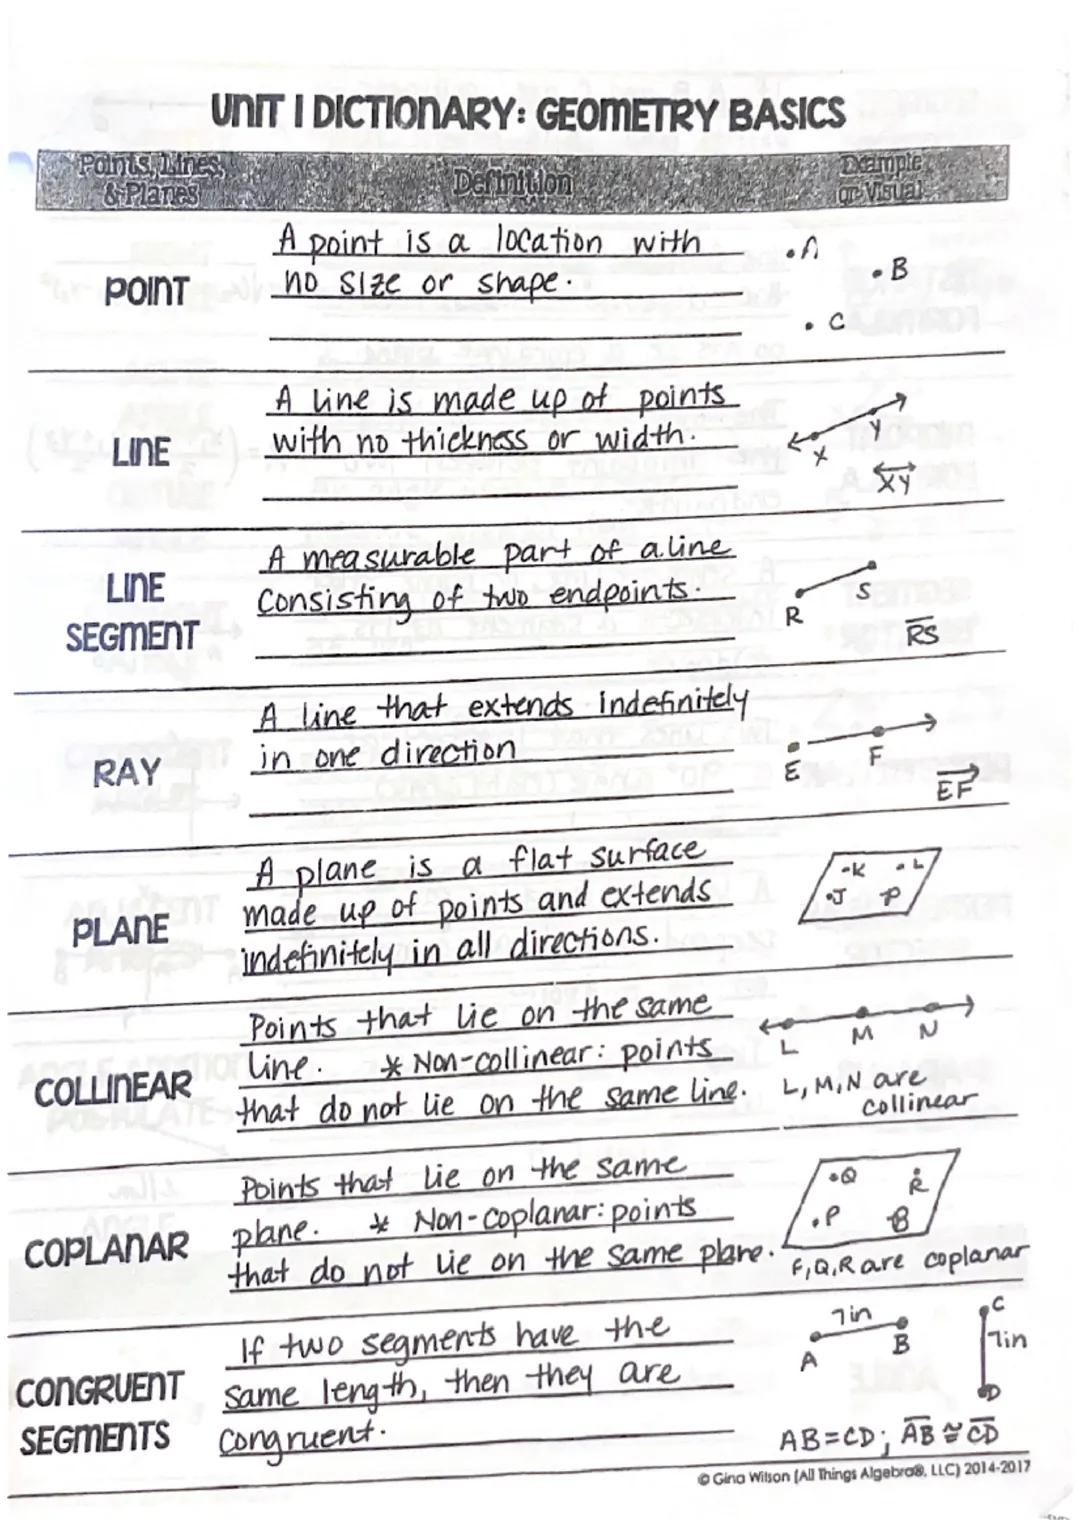 UNIT I DICTIONARY: GEOMETRY BASICS
Points, Lines, & Planes
Definition
Example or Visual
POINT
A point is a location with
no size or shape.
• A
• B
• C
LINE
A line is made up of points
with no thickness or width.
X
Y
XY
LINE
SEGMENT
A measurable part of a line
Consisting of two endpoints.
R
S
RS
RAY
A line that extends indefinitely
in one direction
E
F
EF
PLANE
A plane is a flat surface
made up of points and extends
indefinitely in all directions.
•K •L
•J P
COLLINEAR
Points that lie on the same
line. * Non-collinear: points
that do not lie on the same line.
L M N
L, M, N are
collinear
COPLANAR
Points that lie on the same
plane. * Non-coplanar: points
that do not lie on the same plane.
•Q R
•P B
F, Q, R are coplanar
CONGRUENT
SEGMENTS
If two segments have the
same length, then they are
congruent.
7in
A B
C
7in
D
AB=CD; AB ≅ CD
© Gina Wilson (All Things Algebra®, LLC) 2014-2017